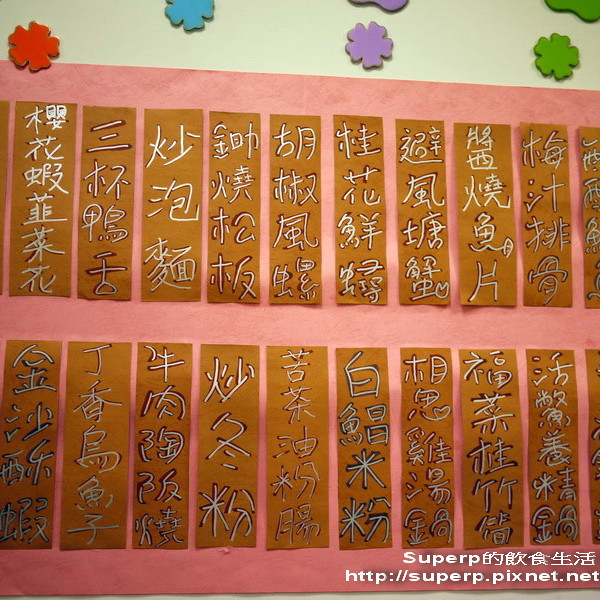 櫻花蝦韮菜花
三杯鴨舌
炒泡麵
鋤燒松板
胡椒風螺
桂花鮮蟳
避風塘蟹
醬燒魚片
梅汁排骨
金沙酥蝦
丁香烏魚子
牛肉陶阪燒
炒冬粉
苦茶油粉腸
白鯧米粉
相思雞湯鍋
福菜桂竹筍
活鱉養精鍋
Superp的飲食生活
http://superp.pixnet.net